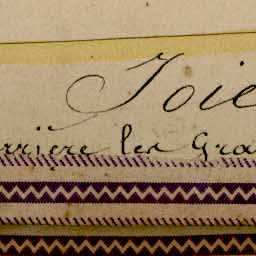 Joie
rrière les Gra